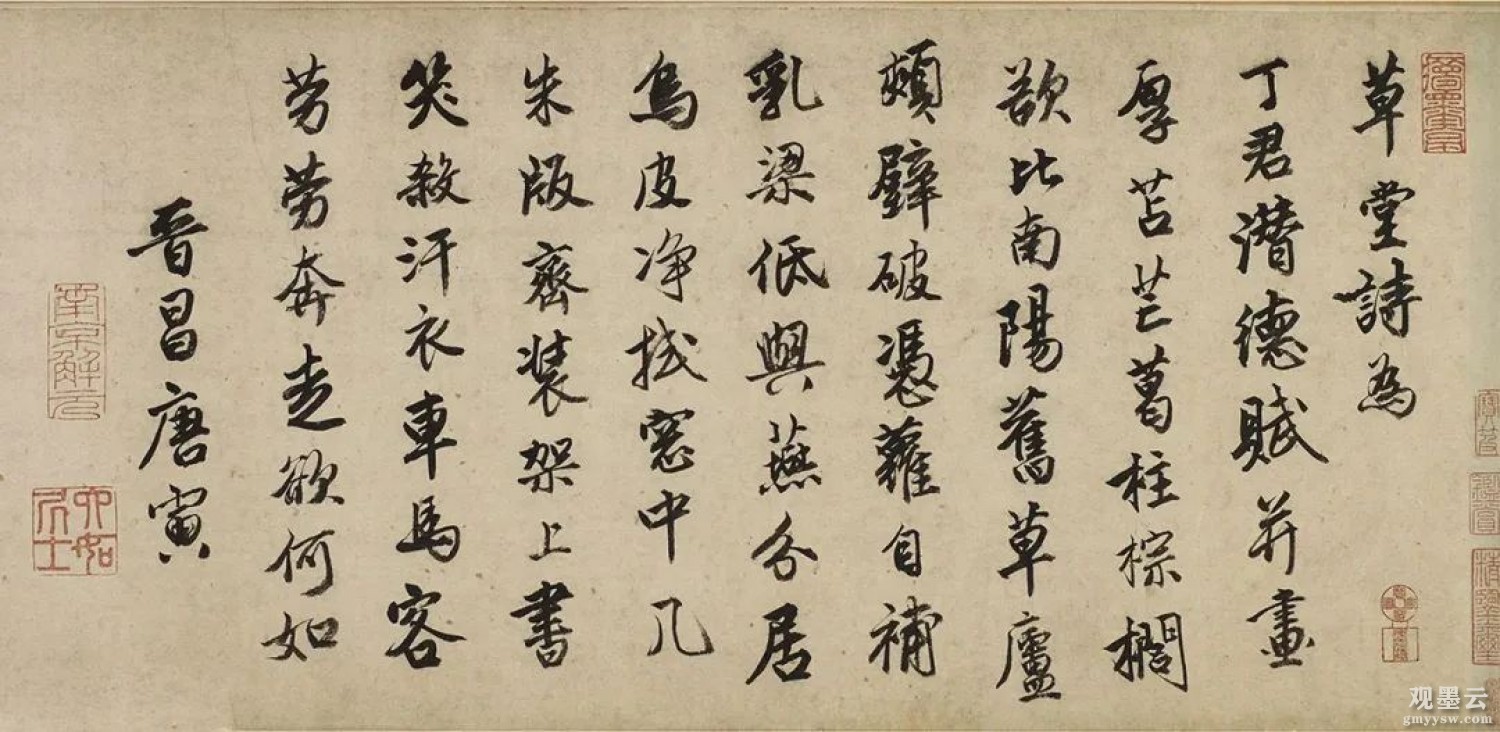 草堂詩為
丁君潛德賦并畫
厚苫芒葛柱棕櫚
欲比南陽舊草廬
頰壁破憑蘿自補
乳梁低與燕分居
烏皮净拭窓中几
朱版齊裝架上書
笑殺汗衣車馬客
勞勞奔走欲何如
晉昌唐寅
南京解元
六如居士
观墨云
gmyysw.com